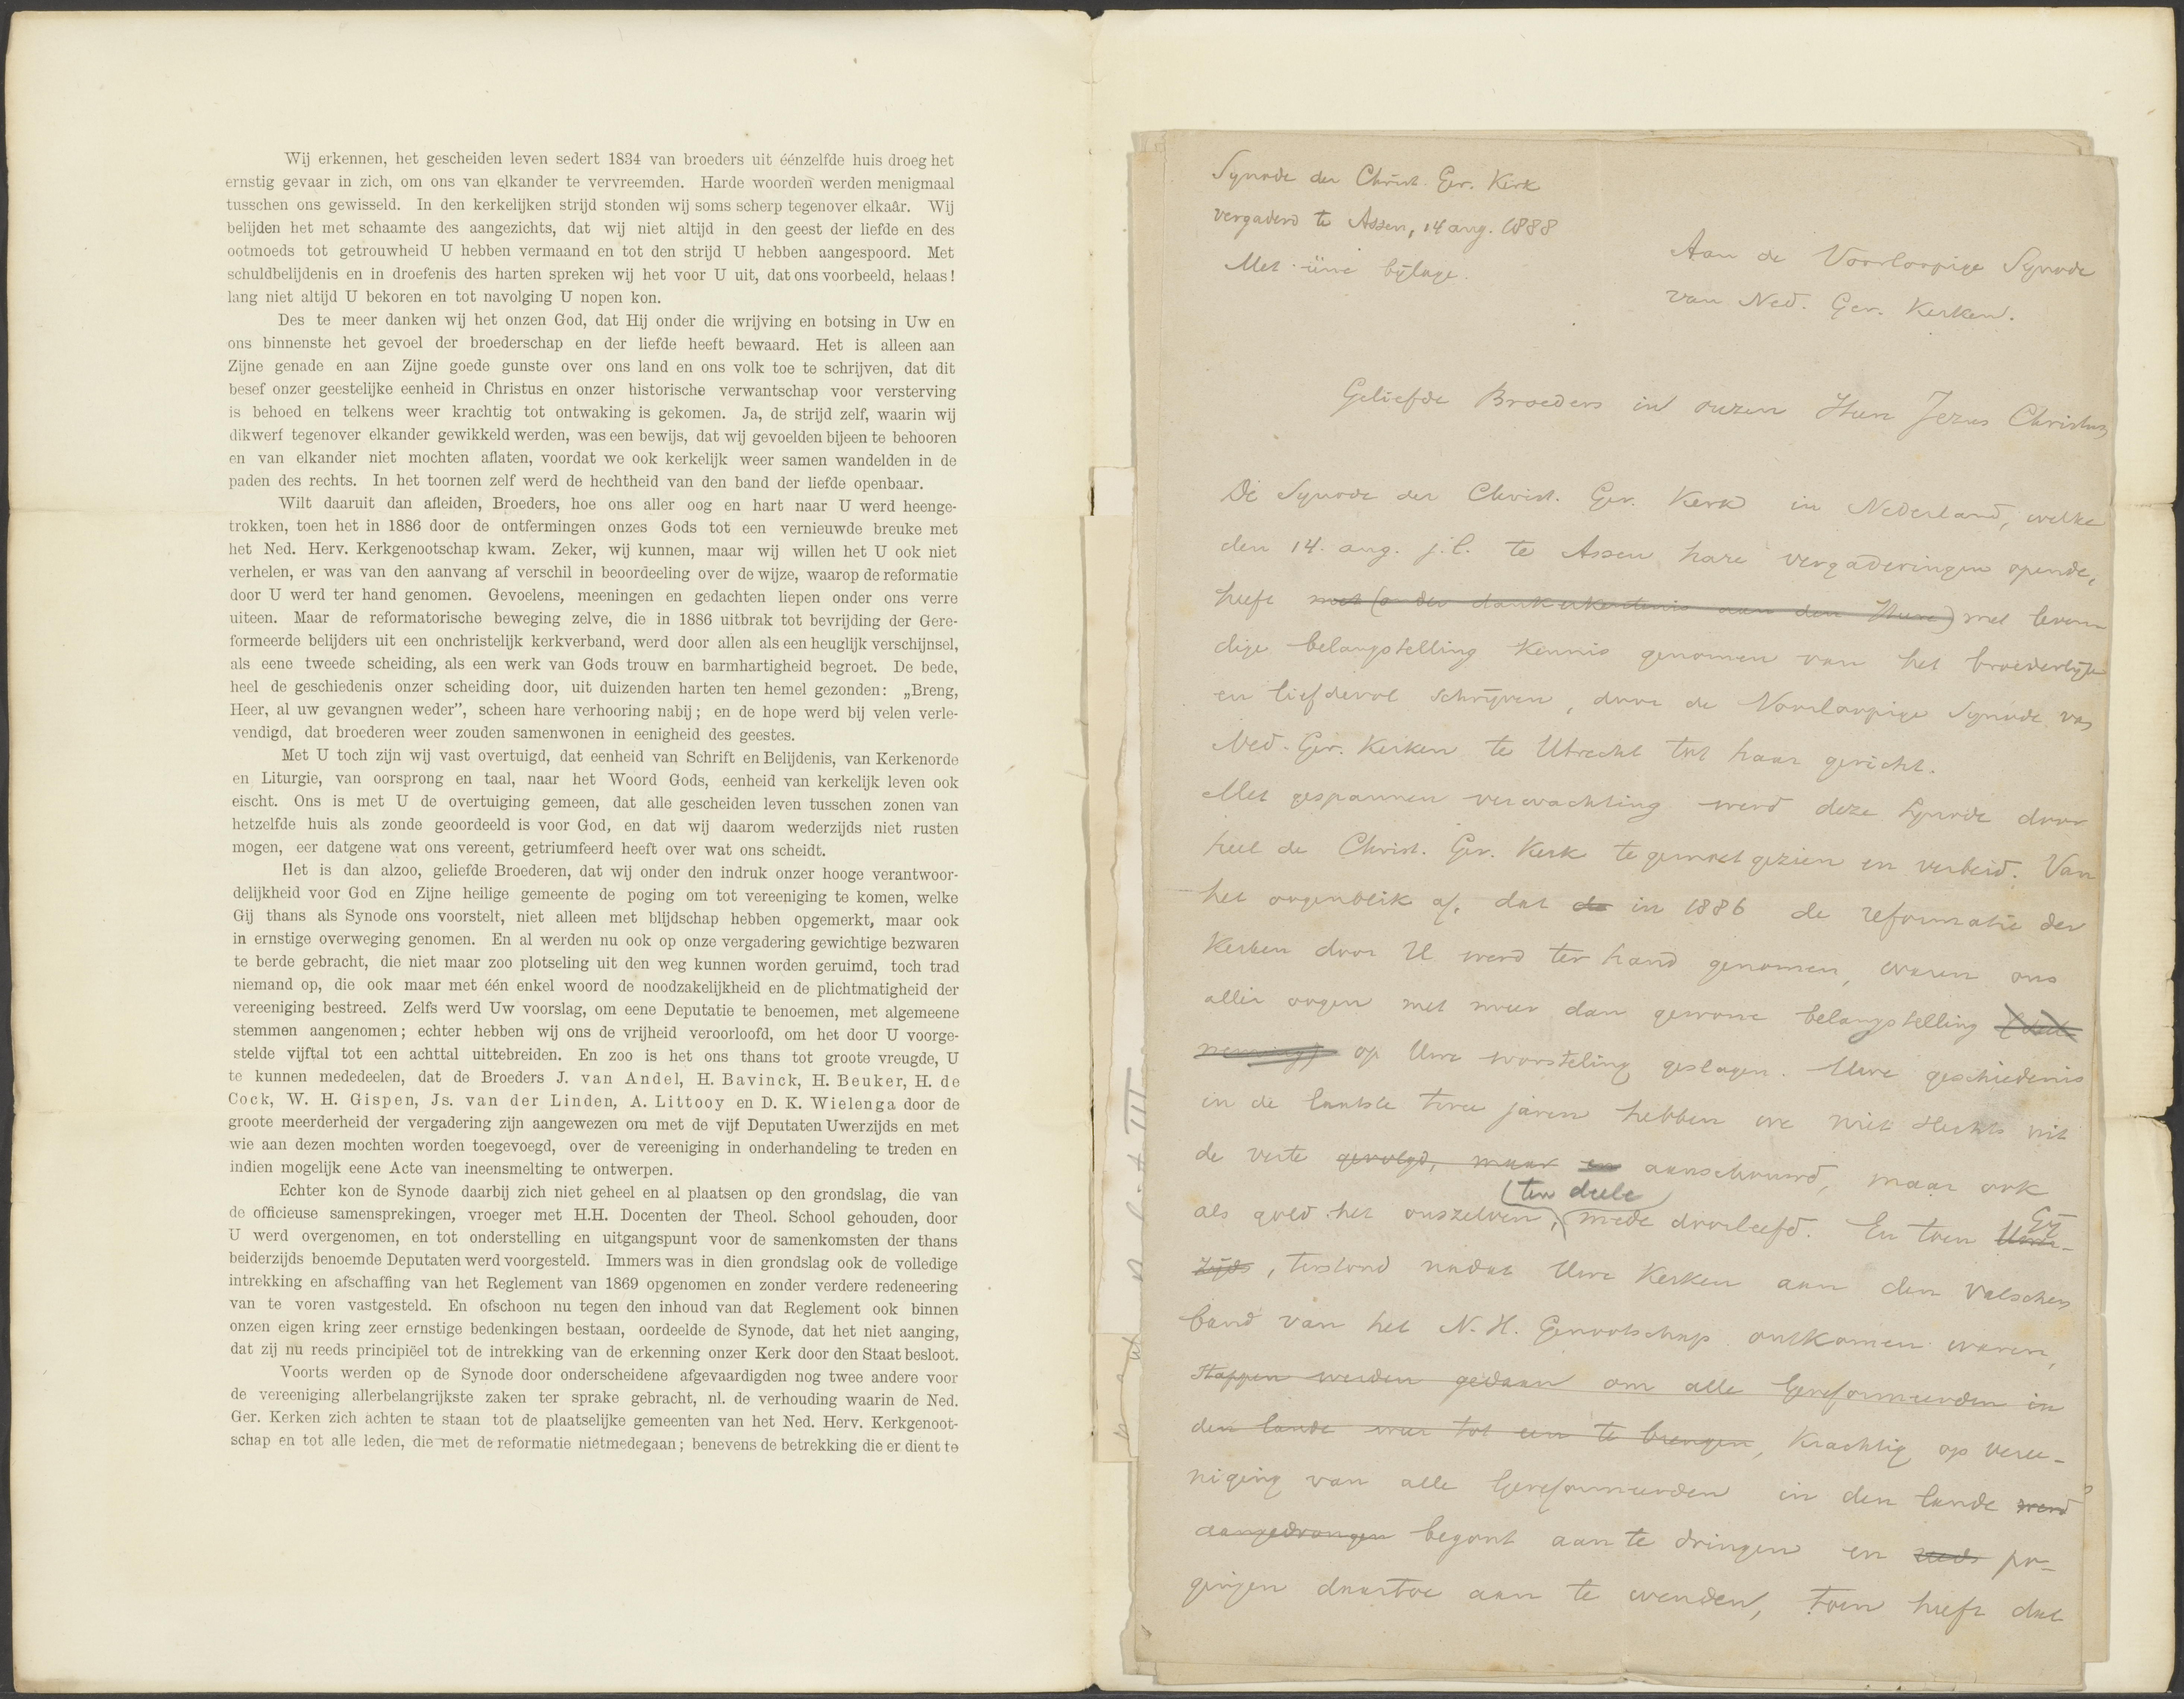 Wij erkennen, het gescheiden leven sedert 1834 van broeders uit éénzelfde huis droeg het
ernstig gevaar in zich, om ons van elkander te vervreemden. Harde woorden werden menigmaal
tusschen ons gewisseld. In den kerkelijken strijd stonden wij soms scherp tegenover elkaâr. Wij
belijden het met schaamte des aangezichts, dat wij niet altijd in den geest der liefde en des
ootmoeds tot getrouwheid U hebben vermaand en tot den strijd U hebben aangespoord. Met
schuldbelijdenis en in droefenis des harten spreken wij het voor U uit, dat ons voorbeeld, helaas!
lang niet altijd U bekoren en tot navolging U nopen kon.
Des te meer danken wij het onzen God, dat Hij onder die wrijving en botsing in Uw en
ons binnenste het gevoel der broederschap en der liefde heeft bewaard. Het is alleen aan
Zijne genade en aan Zijne goede gunste over ons land en ons volk toe te schrijven, dat dit
besef onzer geestelijke eenheid in Christus en onzer historische verwantschap voor versterving
is behoed en telkens weer krachtig tot ontwaking is gekomen. Ja, de strijd zelf, waarin wij
dikwerf tegenover elkander gewikkeld werden, was een bewijs, dat wij gevoelden bijeen te behooren
en van elkander niet mochten aflaten, voordat we ook kerkelijk weer samen wandelden in de
paden des rechts. In het toornen zelf werd de hechtheid van den band der liefde openbaar.
Wilt daaruit dan afleiden, Broeders, hoe ons aller oog en hart naar U werd heenge-
trokken, toen het in 1886 door de ontfermingen onzes Gods tot een vernieuwde breuke met
het Ned. Herv. Kerkgenootschap kwam. Zeker, wij kunnen, maar wij willen het U ook niet
verhelen, er was van den aanvang af verschil in beoordeeling over de wijze, waarop de reformatie
door U werd ter hand genomen. Gevoelens, meeningen en gedachten liepen onder ons verre
uiteen. Maar de reformatorische beweging zelve, die in 1886 uitbrak tot bevrijding der Gere-
formeerde belijders uit een onchristelijk kerkverband, werd door allen als een heuglijk verschijnsel,
als eene tweede scheiding, als een werk van Gods trouw en barmhartigheid begroet. De bede,
heel de geschiedenis onzer scheiding door, uit duizenden harten ten hemel gezonden: „Breng,
Heer, al uw gevangnen weder”, scheen hare verhooring nabij; en de hope werd bij velen verle-
vendigd, dat broederen weer zouden samenwonen in eenigheid des geestes.
Met U toch zijn wij vast overtuigd, dat eenheid van Schrift en Belijdenis, van Kerkenorde
en Liturgie, van oorsprong en taal, naar het Woord Gods, eenheid van kerkelijk leven ook
eischt. Ons is met U de overtuiging gemeen, dat alle gescheiden leven tusschen zonen van
hetzelfde huis als zonde geoordeeld is voor God, en dat wij daarom wederzijds niet rusten
mogen, eer datgene wat ons vereent, getriumfeerd heeft over wat ons scheidt.
Het is dan alzoo, geliefde Broederen, dat wij onder den indruk onzer hooge verantwoor-
delijkheid voor God en Zijne heilige gemeente de poging om tot vereeniging te komen, welke
Gij thans als Synode ons voorstelt, niet alleen met blijdschap hebben opgemerkt, maar ook
in ernstige overweging genomen. En al werden nu ook op onze vergadering gewichtige bezwaren
te berde gebracht, die niet maar zoo plotseling uit den weg kunnen worden geruimd, toch trad
niemand op, die ook maar met één enkel woord de noodzakelijkheid en de plichtmatigheid der
vereeniging bestreed. Zelfs werd Uw voorslag, om eene Deputatie te benoemen, met algemeene
stemmen aangenomen; echter hebben wij ons de vrijheid veroorloofd, om het door U voorge-
stelde vijftal tot een achttal uittebreiden. En zoo is het ons thans tot groote vreugde, U
te kunnen mededeelen, dat de Broeders J. van Andel, H. Bavinck, H. Beuker, H. de
Cock, W. H. Gispen, Js. van der Linden, A. Littooy en D. K. Wielenga door de
groote meerderheid der vergadering zijn aangewezen om met de vijf Deputaten Uwerzijds en met
wie aan dezen mochten worden toegevoegd, over de vereeniging in onderhandeling te treden en
indien mogelijk eene Acte van ineensmelting te ontwerpen.
Echter kon de Synode daarbij zich niet geheel en al plaatsen op den grondslag, die van
de officieuse samensprekingen, vroeger met H.H. Docenten der Theol. School gehouden, door
U werd overgenomen, en tot onderstelling en uitgangspunt voor de samenkomsten der thans
beiderzijds benoemde Deputaten werd voorgesteld. Immers was in dien grondslag ook de volledige
intrekking en afschaffing van het Reglement van 1869 opgenomen en zonder verdere redeneering
van te voren vastgesteld. En ofschoon nu tegen den inhoud van dat Reglement ook binnen
onzen eigen kring zeer ernstige bedenkingen bestaan, oordeelde de Synode, dat het niet aanging,
dat zij nu reeds principiëel tot de intrekking van de erkenning onzer Kerk door den Staat besloot.
Voorts werden op de Synode door onderscheidene afgevaardigden nog twee andere voor
de vereeniging allerbelangrijkste zaken ter sprake gebracht, nl. de verhouding waarin de Ned.
Ger. Kerken zich achten te staan tot de plaatselijke gemeenten van het Ned. Herv. Kerkgenoot-
schap en tot alle leden, die met de reformatie niet medegaan; benevens de betrekking die er dient te
Synode der Christ. Ger. Kerk
vergaderd te Assen, 14 aug. 1888
Met ééne bijlage.
Aan de Voorloopige Synode
van Ned. Ger. Kerken.
Geliefde Broeders in onzen Heer Jezus Christus,
De Synode der Christ. Ger. Kerk in Nederland, welke
den 14. aug. j.l. te Assen hare vergaderingen opende,
heeft met (onder dankerkentenis aan den Heere) met leven
dige belangstelling kennis genomen van het broederlijk
en liefdevol schrijven, door de Voorloopige Synode van
Ned. Ger. Kerken te Utrecht tot haar gericht.
Met gespannen verwachting werd deze Synode door
heel de Christ. Ger. Kerk tegemoet gezien en verbeid. Van
het oogenblik af, dat de in 1886 de reformatie der
Kerken door U werd ter hand genomen, waren ons
aller oogen met meer dan gewone belangstelling (deel
neming) op Uwe worsteling geslagen. Uwe geschiedenis
in de laatste twee jaren hebben we niet slechts uit
de verte gevolgd, maar en aanschouwd, maar ook
(ten deele)
als gold het onszelven, mede doorleefd. En toen Uwer-
Gij
zijds, terstond nadat Uwe Kerken aan den valschen
band van het N. H. Genootschap ontkomen waren,
stappen werden gedaan om alle Gereformeerden in
den lande weer tot een te brengen, krachtig op veree-
niging van alle Gereformeerden in den lande werd
aangedrongen begont aan te dringen en reeds po-
gingen daartoe aan te wenden, toen heeft dat